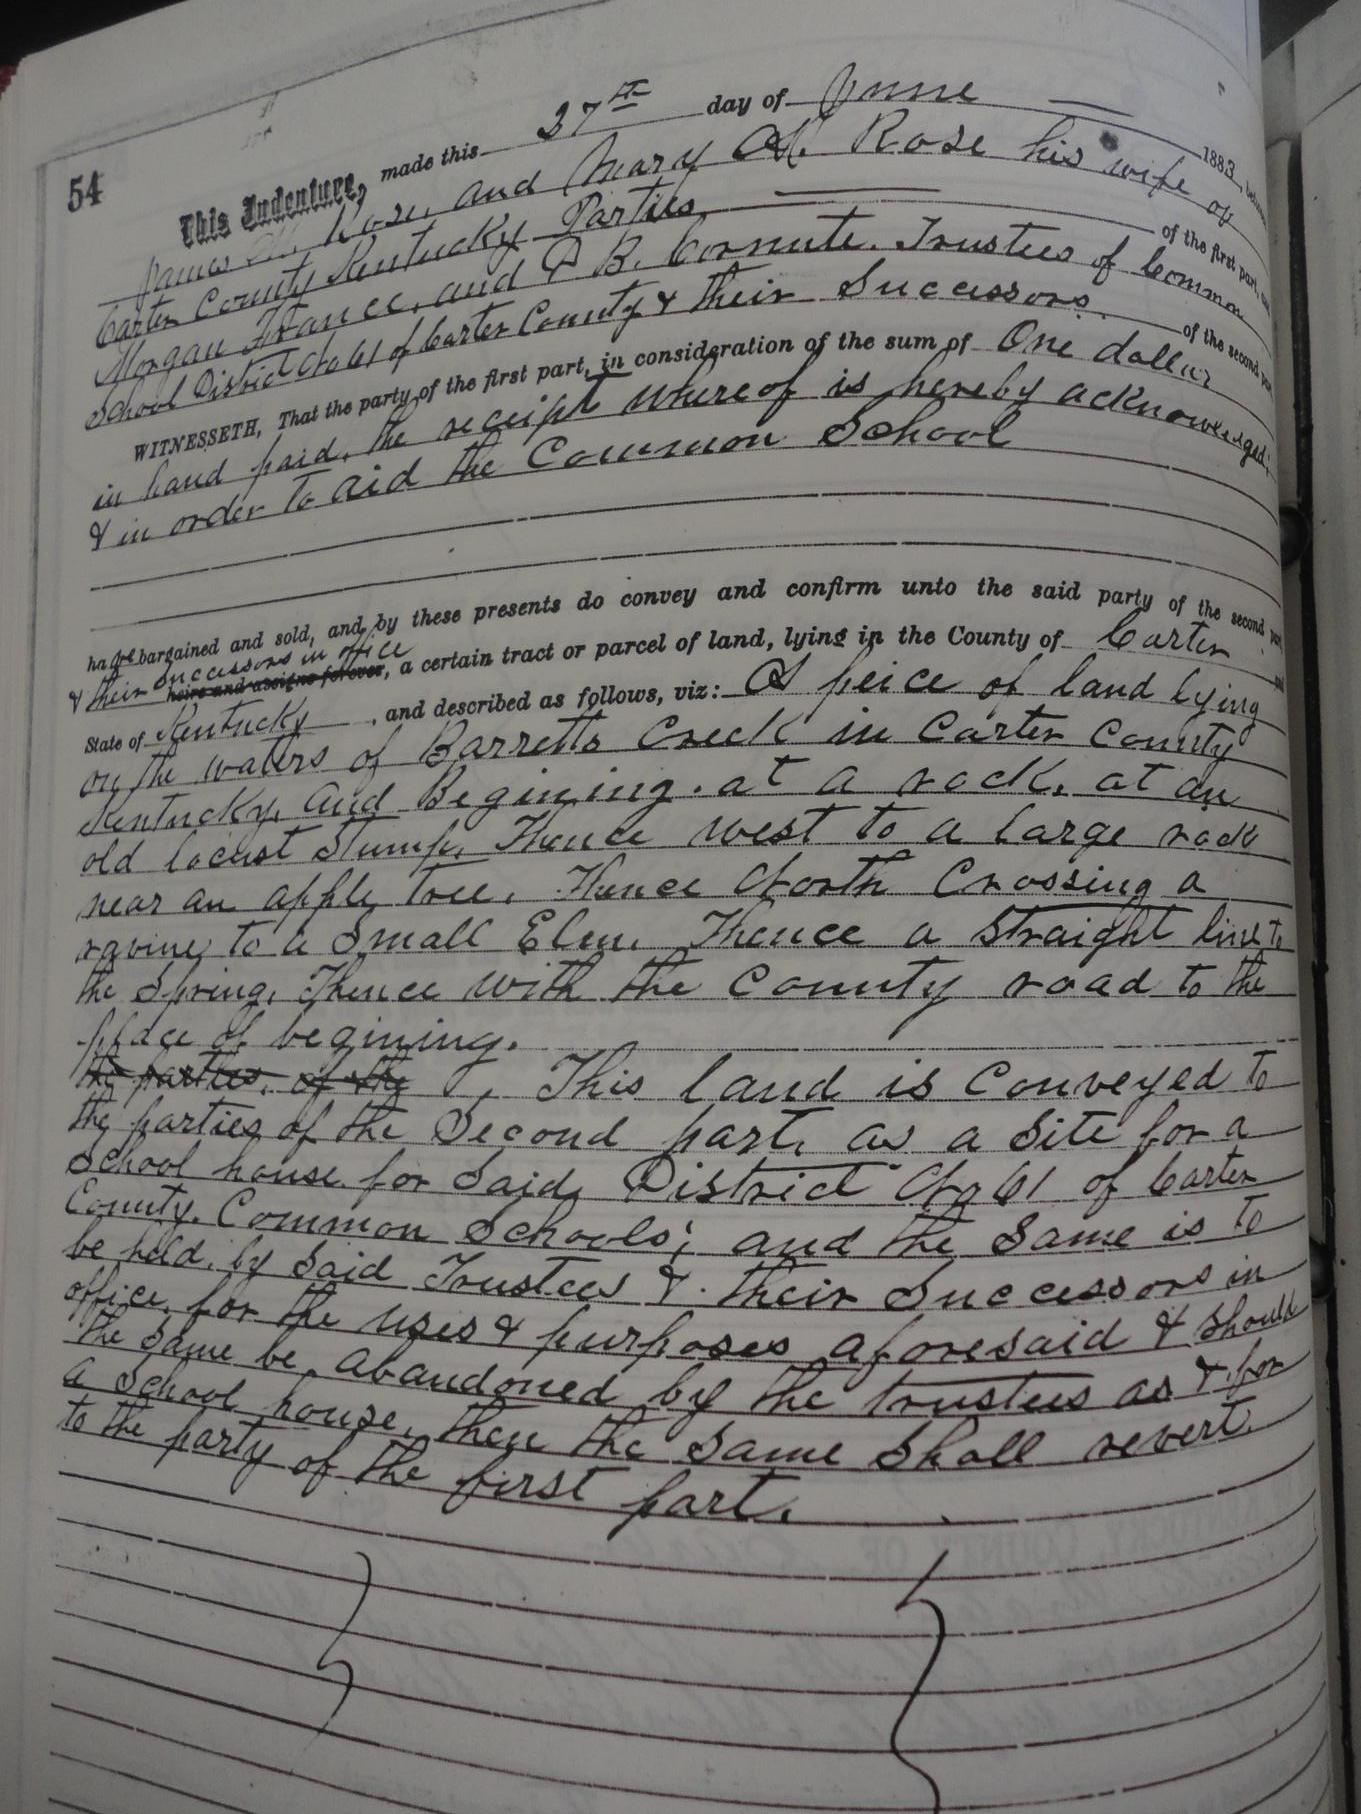 54
This Indenture, made this 27th day of June 1883,
James M. Rose, and Mary M. Rose his wife of
Carter County Kentucky Parties of the first part, and
Morgan France, and P B. Cornute. Trustees of Common
School District No 61 of Carter County & their Successors. of the second part
WITNESSETH, That the party of the first part, in consideration of the sum of One dollar
in hand paid, the receipt whereof is hereby acknowledged;
& in order to aid the Common School
have bargained and sold, and by these presents do convey and confirm unto the said party of the second part
& their successors in office heirs and assigns forever, a certain tract or parcel of land, lying in the County of Carter and
State of Kentucky, and described as follows, viz: A peice of land lying
on the waters of Barretts Creek in Carter County
Kentucky, and Begining. at a rock, at an
old locust Stump, Thence west to a large rock
near an apple tree. Thence North Crossing a
ravine, to a Small Elm. Thence a straight line to
the Spring, Thence with the County road to the
place of begining.
the parties, of the, This land is Conveyed to
the parties of the Second part, as a Site for a
School house for Said, District No 61 of Carter
County, Common Schools; and the Same is to
be held, by Said Trustees & their Successors in
office, for the uses & purposes aforesaid & should
the Same be abandoned by the trustees as & for
a School house, then the Same Shall revert
to the party of the first part.